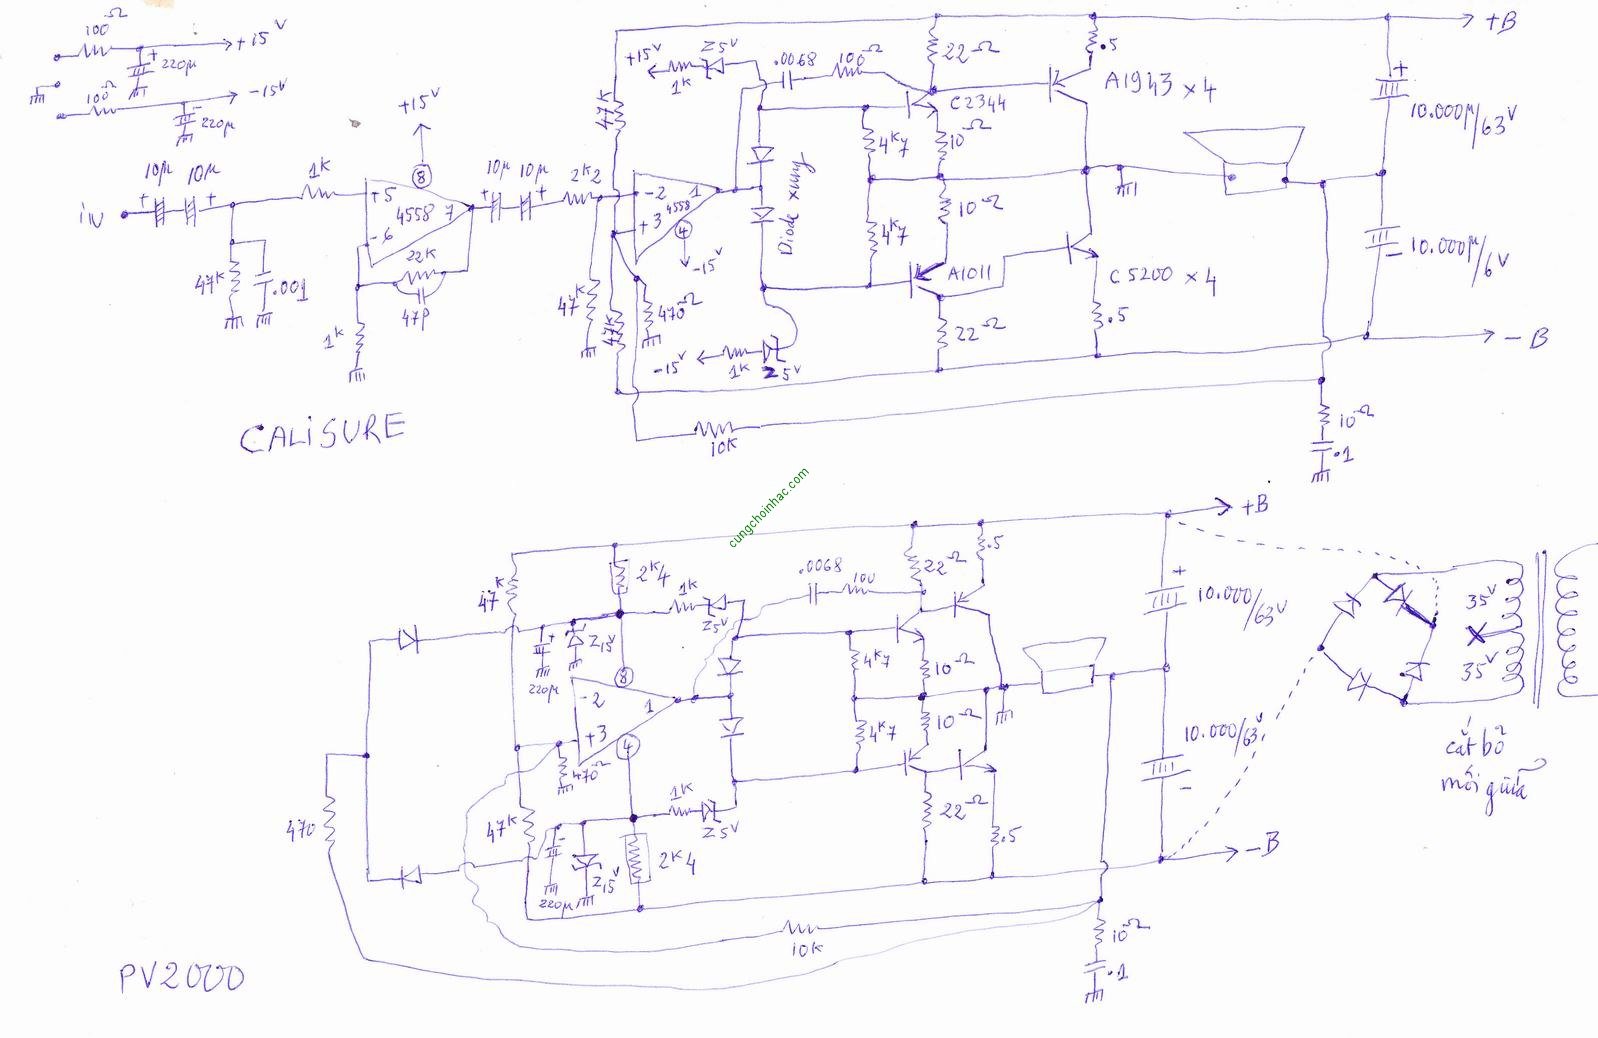 100Ω
+15V
+
220µ
100Ω
-15V
220µ
+15V
10µ 10µ
+ +
iN
1K
+5
8
4558 7
-6
47K
.001
22K
47P
1K
10µ 10µ
+ +
2K2
47K
+15V
Z5V
1K
.0068
100Ω
-2 1
4558
+3
4
-15V
47K
47K
470Ω
Diode xung
-15V
1K
Z5V
22Ω
C2344
10Ω
4K7
10Ω
4K7
A1011
22Ω
.5
A1943 × 4
C5200 × 4
.5
+B
+
10.000µ/63V
10.000µ/6V
-
-B
10Ω
.1
10K
CALiSURE
cungchoinhac.com
47K
2K4
1K
Z5V
.0068
100
22Ω
.5
+B
+
220µ
Z15V
8
-2 1
+3
4
470Ω
4K7
10Ω
4K7
10Ω
+
10.000/63V
10.000/63V
-
35V
35V
cắt bỏ
mối giữa
470
47K
1K
Z5V
22Ω
.5
220µ
Z15V
2K4
-B
10K
10Ω
.1
PV2000